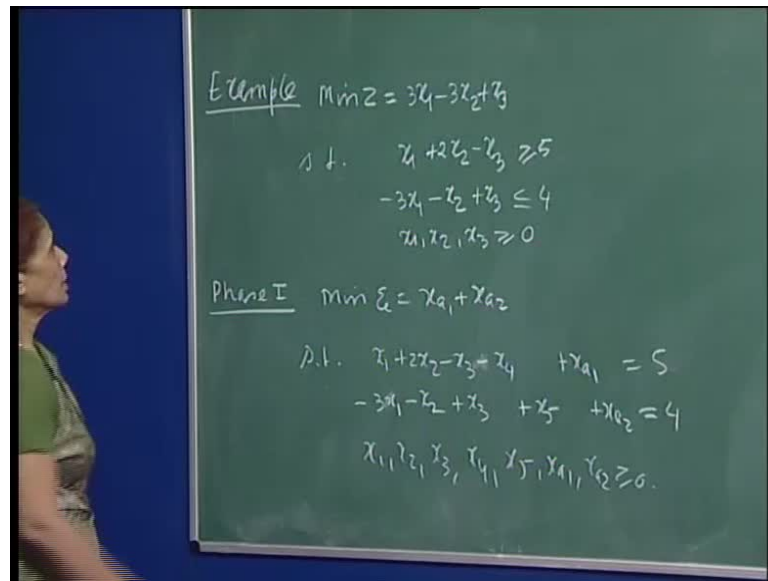 Example Min Z = 3x₁-3x₂+x₃
s.t. x₁+2x₂-x₃ ≥ 5
-3x₁-x₂+x₃ ≤ 4
x₁,x₂,x₃ ≥ 0
Phase I Min ξ = xa₁+xa₂
s.t. x₁+2x₂-x₃-x₄ +xa₁ = 5
-3x₁-x₂+x₃ +x₅ +xa₂ = 4
x₁,x₂,x₃,x₄,x₅,xa₁,xa₂ ≥ 0.